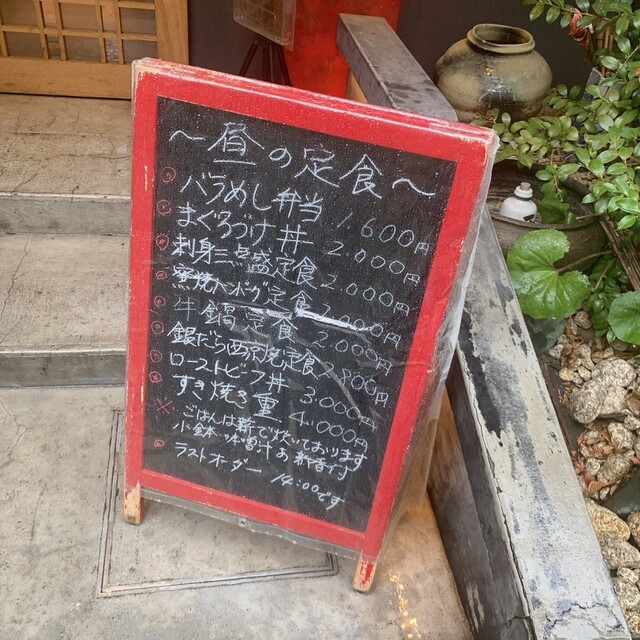 ～昼の定食～
バラめし弁当 1.600円
まぐろづけ丼 2.000円
刺身三点盛定食 2.000円
窯焼ハンバーグ定食 2.000円
牛鍋定食 2.000円
銀だら西京焼定食 1.800円
ローストビーフ丼 3.000円
すき焼き重 4.000円
ごはんは薪で炊いております
小鉢 味噌汁 お新香付
ラストオーダー 14:00です